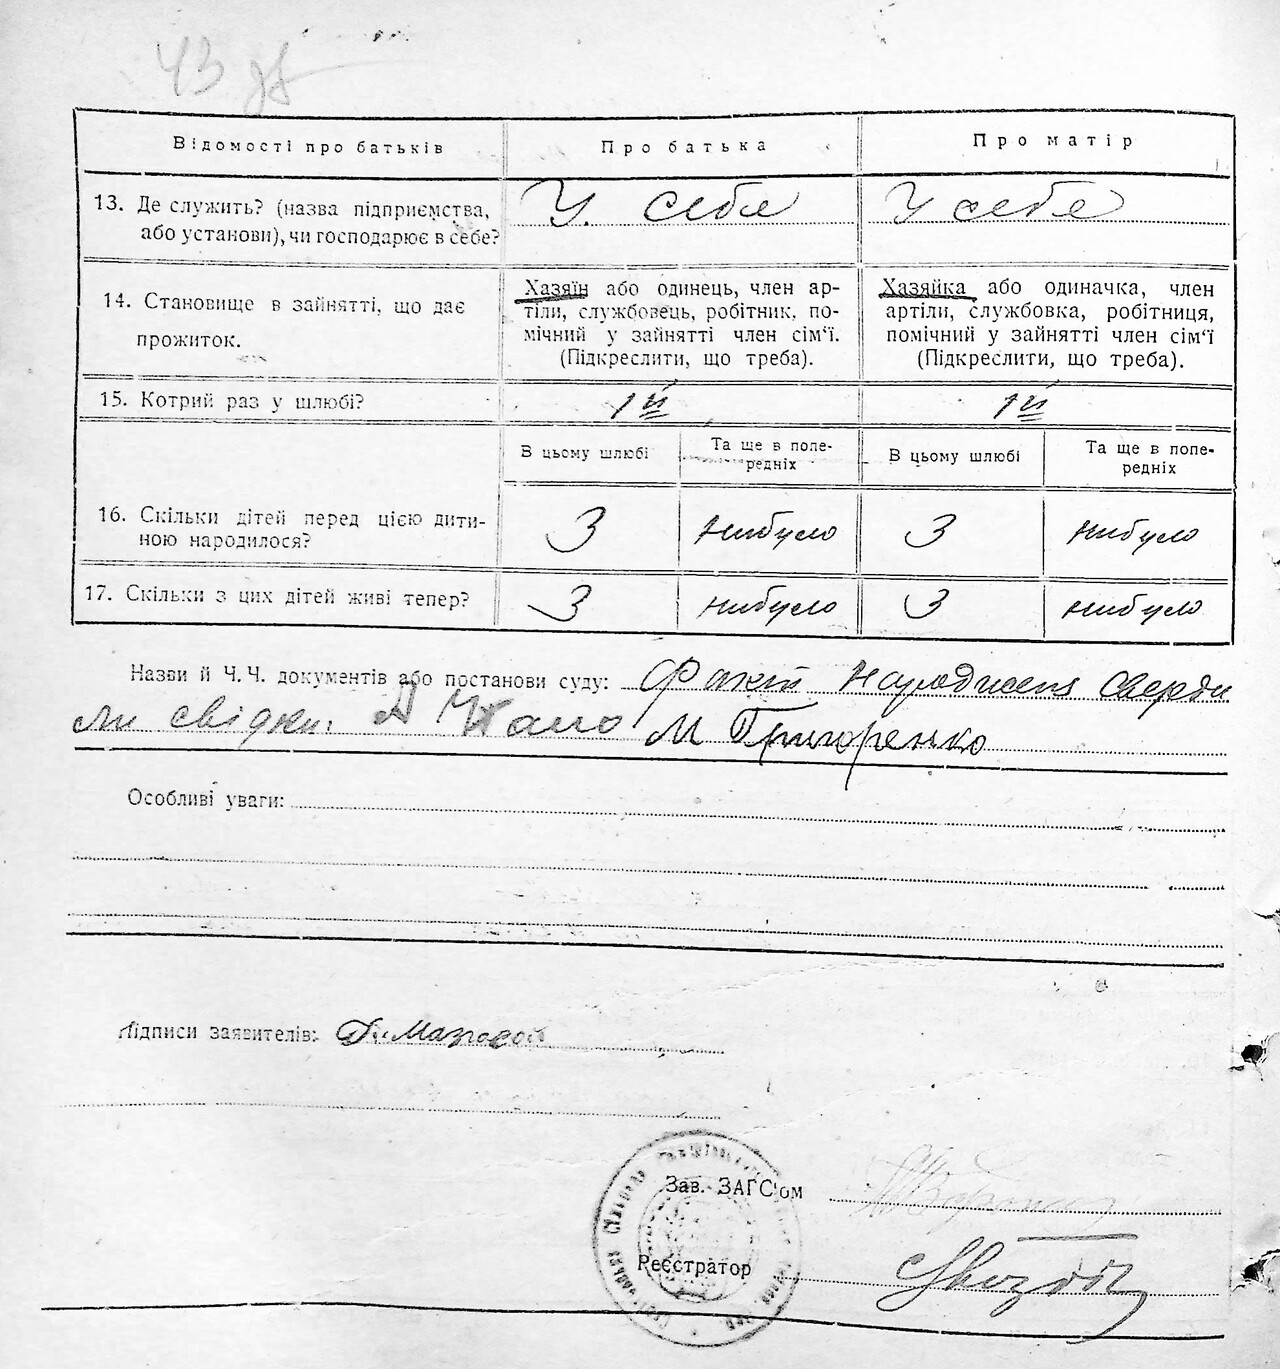 43
Відомості про батьків
Про батька
Про матір
13. Де служить? (назва підприємства,
або установи), чи господарює в себе?
У. себе
У себе
14. Становище в зайнятті, що дає
прожиток.
Хазяїн або одинець, член ар-
тіли, службовець, робітник, по-
мічний у зайнятті член сім'ї.
(Підкреслити, що треба).
Хазяйка або одиначка, член
артіли, службовка, робітниця,
помічний у зайнятті член сім'ї
(Підкреслити, що треба).
15. Котрий раз у шлюбі?
1й
1й
В цьому шлюбі
Та ще в попе-
редніх
В цьому шлюбі
Та ще в попе-
редніх
16. Скільки дітей перед цією дити-
ною народилося?
3
нибуло
3
нибуло
17. Скільки з цих дітей живі тепер?
3
нибуло
3
нибуло
Назви й Ч.Ч. документів або постанови суду: Факт народження сверди
ли свідки: М Григоренко
Особливі уваги:
Підписи заявителів:
Зав. ЗАГС'ом
Реєстратор